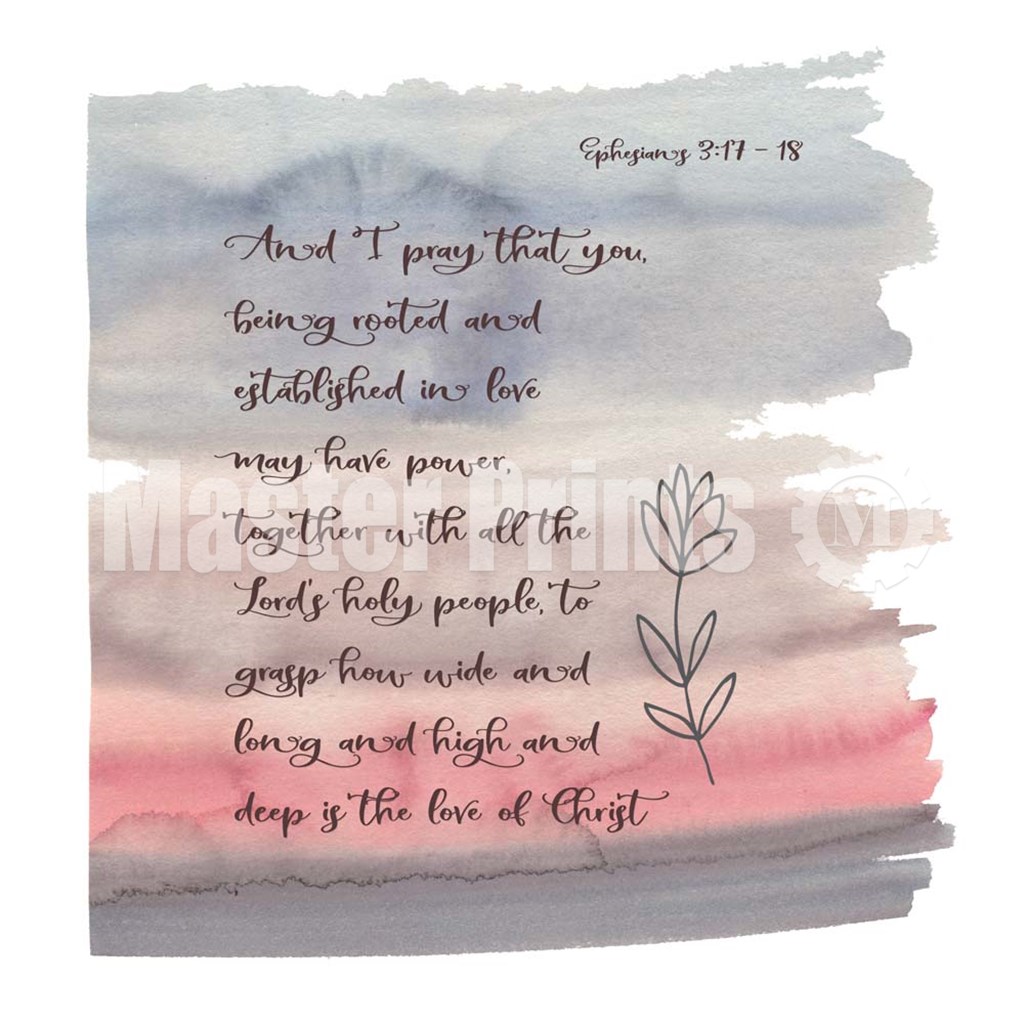 Ephesians 3:17 – 18
And I pray that you,
being rooted and
established in love
may have power,
together with all the
Lord's holy people, to
grasp how wide and
long and high and
deep is the love of Christ
Master Prints M